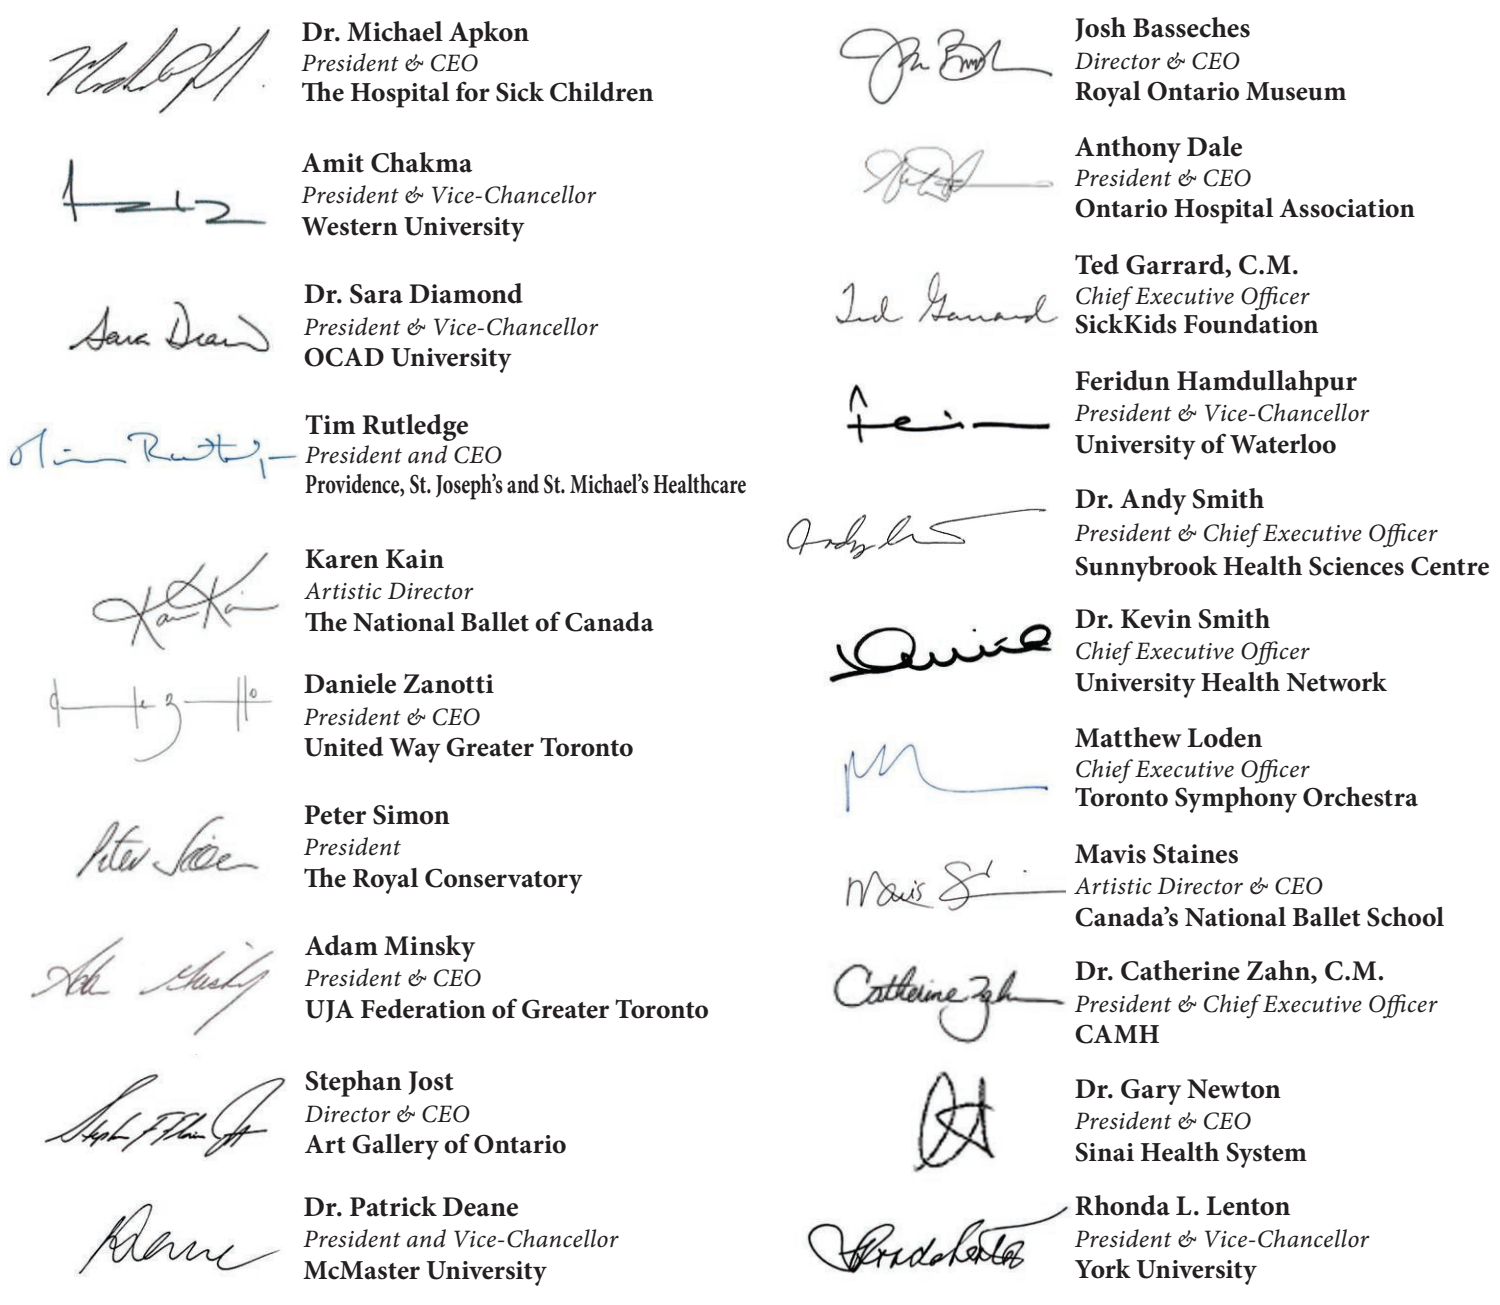 Dr. Michael Apkon
President & CEO
The Hospital for Sick Children
Amit Chakma
President & Vice-Chancellor
Western University
Sara Diamond
Dr. Sara Diamond
President & Vice-Chancellor
OCAD University
Tim Rutledge
President and CEO
Providence, St. Joseph's and St. Michael's Healthcare
Karen Kain
Karen Kain
Artistic Director
The National Ballet of Canada
Daniele Zanotti
President & CEO
United Way Greater Toronto
Peter Simon
Peter Simon
President
The Royal Conservatory
Adam Minsky
President & CEO
UJA Federation of Greater Toronto
Stephan Jost
Director & CEO
Art Gallery of Ontario
Dr. Patrick Deane
President and Vice-Chancellor
McMaster University
Josh Basseches
Director & CEO
Royal Ontario Museum
Anthony Dale
President & CEO
Ontario Hospital Association
Ted Garrard
Ted Garrard, C.M.
Chief Executive Officer
SickKids Foundation
Feridun Hamdullahpur
President & Vice-Chancellor
University of Waterloo
Dr. Andy Smith
President & Chief Executive Officer
Sunnybrook Health Sciences Centre
Dr. Kevin Smith
Chief Executive Officer
University Health Network
Matthew Loden
Chief Executive Officer
Toronto Symphony Orchestra
Mavis Staines
Artistic Director & CEO
Canada's National Ballet School
Catherine Zahn
Dr. Catherine Zahn, C.M.
President & Chief Executive Officer
CAMH
Dr. Gary Newton
President & CEO
Sinai Health System
Rhonda L. Lenton
President & Vice-Chancellor
York University